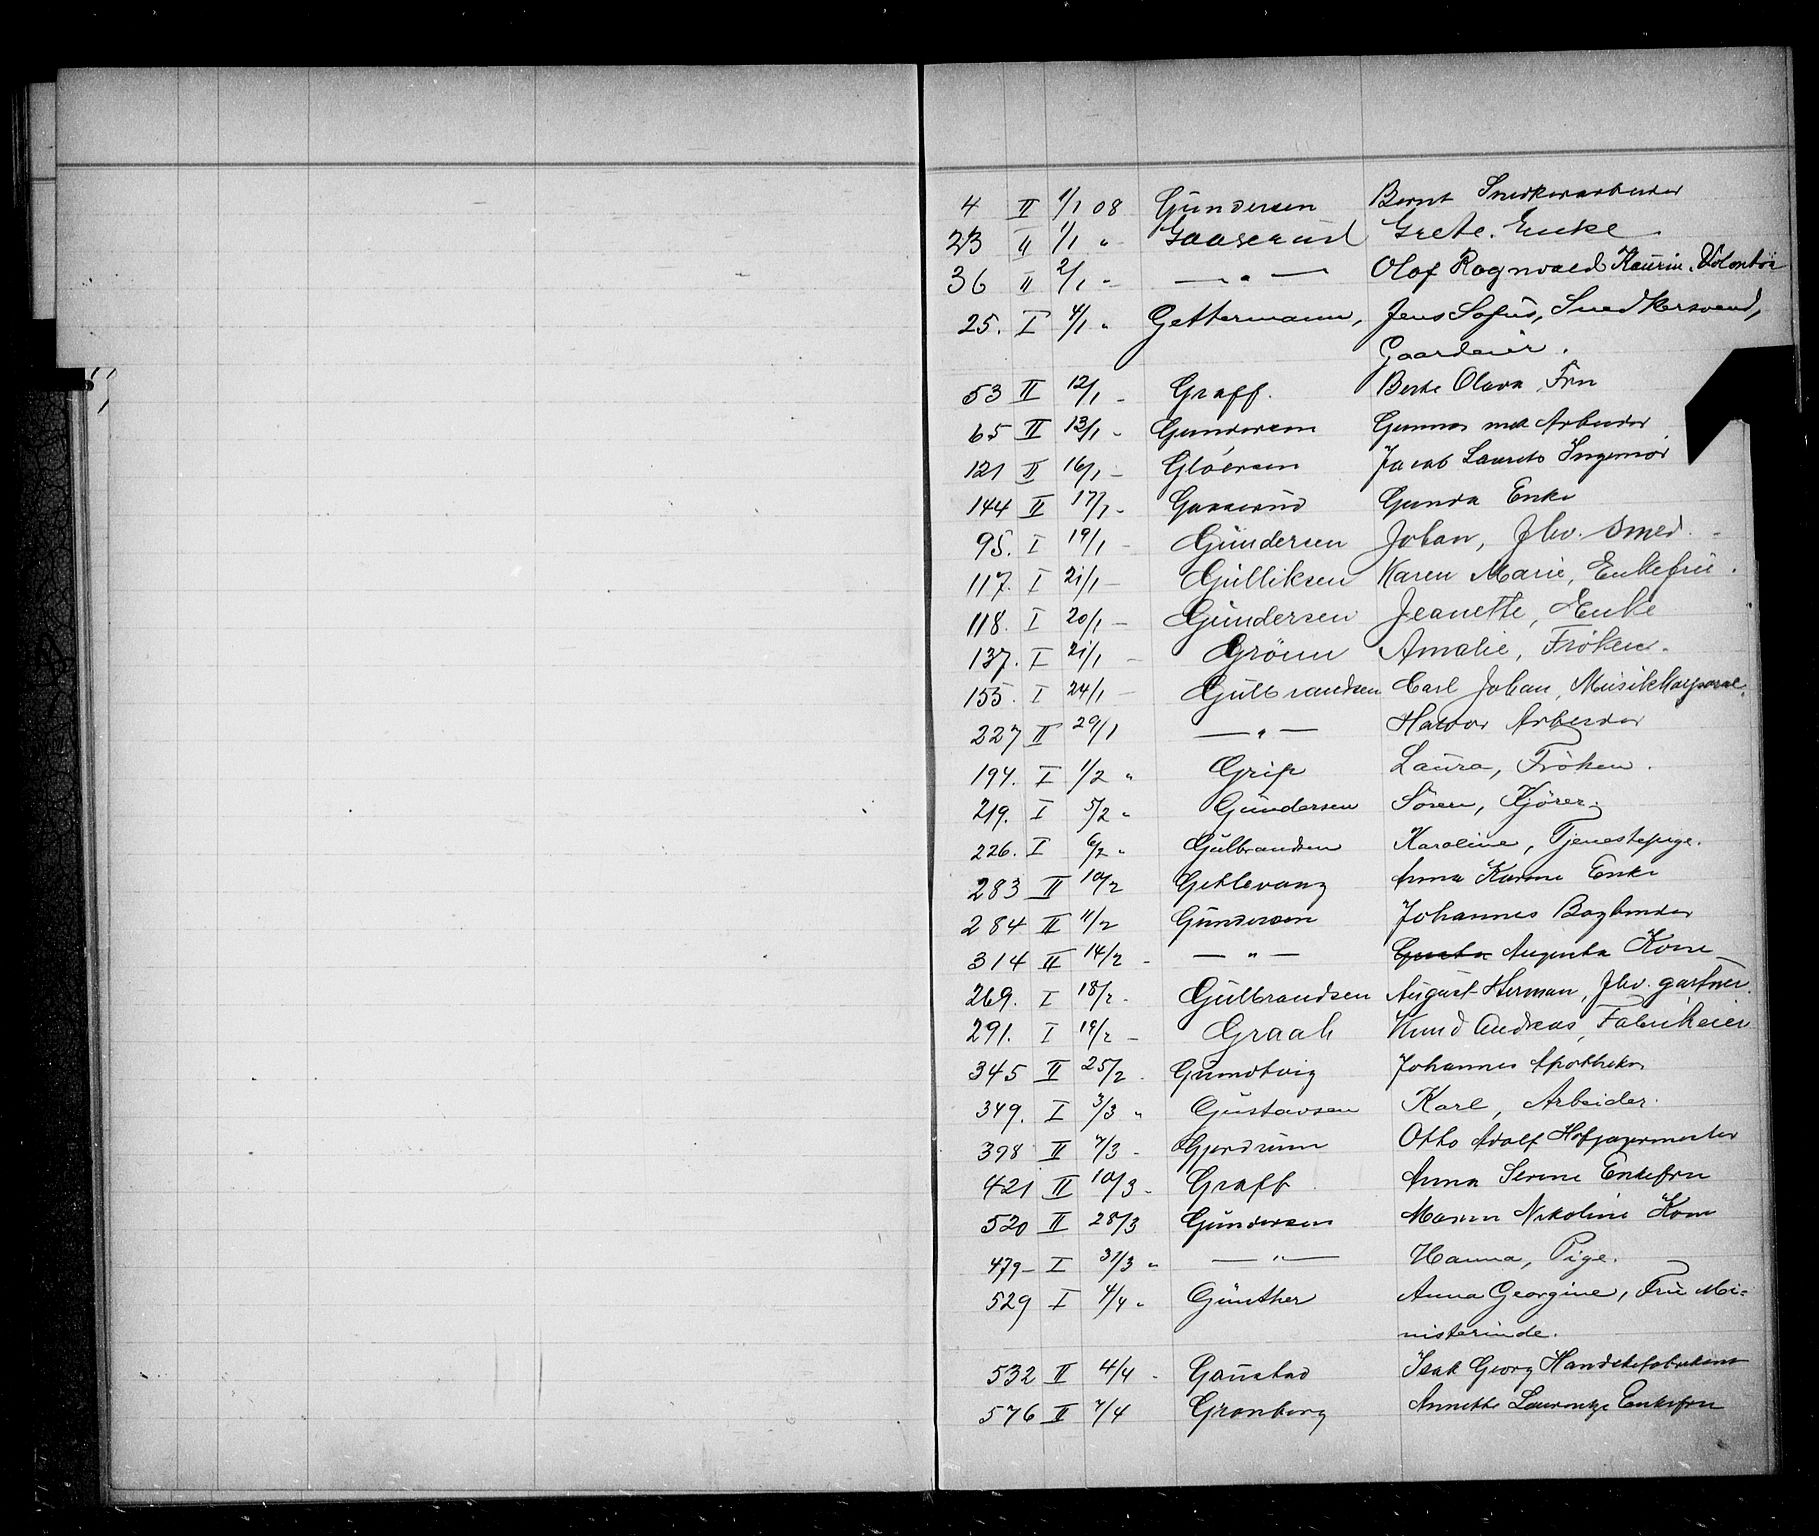 4 II 1/1 08 Gundersen Bernt Snedkerarbeider
23 II 1/1 " Gaaserud Grete. Enke.
36 II 2/1 " — " — Olaf Ragnvald Kaurin. Volontør
25. I 4/1 " Gettermann, Jens Sofus, Snedkersvend,
Gaardeier.
53 II 12/1 - Graff. Berte Olava Fru
65 II 13/1 - Gundersen Gunnar mek Arbeider
121 II 16/1 - Gløersen Jacob Laurets Ingeniør
144 II 17/1 - Gaaserud Gunda Enke
95. I 19/1 - Gundersen Johan, Fhv. smed.
117. I 21/1 - Gulliksen Karen Marie, Enkefru.
118. I 20/1 - Gundersen Jeanette, Enke
137. I 21/1 - Grönn Amalie, Frøken.
155. I 24/1 - Gulbrandsen Carl Johan, Musikkorporal.
227 II 29/1 — " — Halvor Arbeider
194. I 1/2 " Grip Laura, Frøken.
219. I 5/2 " Gundersen Sören, Kjörer.
226. I 6/2 " Gulbrandsen Karoline, Tjenestepige.
283 II 10/2 Getlevang Anna Karine Enke
284 II 11/2 Gundersen Johannes Bogbinder
314 II 14/2 - — " — Augusta Kone
269. I 18/2 - Gulbrandsen August Herman, Fhv. gartner.
291. I 19/2 - Graah Knud Andreas, Fabrikeier
345 II 25/2 - Grundtvig Johannes Apotheker
349. I 3/3 " Gustavsen Karl, Arbeider.
398 II 7/3 - Gjerdrum Otto Adolf Hofjægermester
421 II 10/3 - Graff Anna Serine Enkefru
520 II 28/3 Gundersen Maren Nikoline Kone
479 - I 31/3 " — " — Hanna, Pige.
529 I 4/4 " Günther Anna Georgine, Fru Mi-
nisterinde.
532 II 4/4 - Gaustad Isak Georg Handskefabrikant
576 II 7/4 Grønberg Annette Laurentze Enkefru